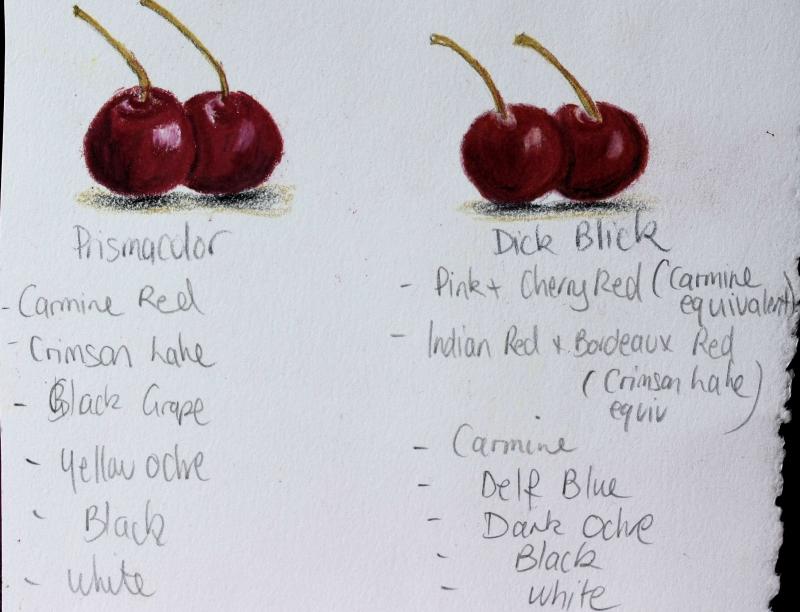 Prismacolor
- Carmine Red
- Crimson Lake
- Black Grape
- Yellow Ochre
- Black
- White
Dick Blick
- Pink + Cherry Red (Carmine
equivalent)
- Indian Red + Bordeaux Red
(Crimson Lake)
equiv
- Carmine
- Delf Blue
- Dark Ochre
- Black
- White